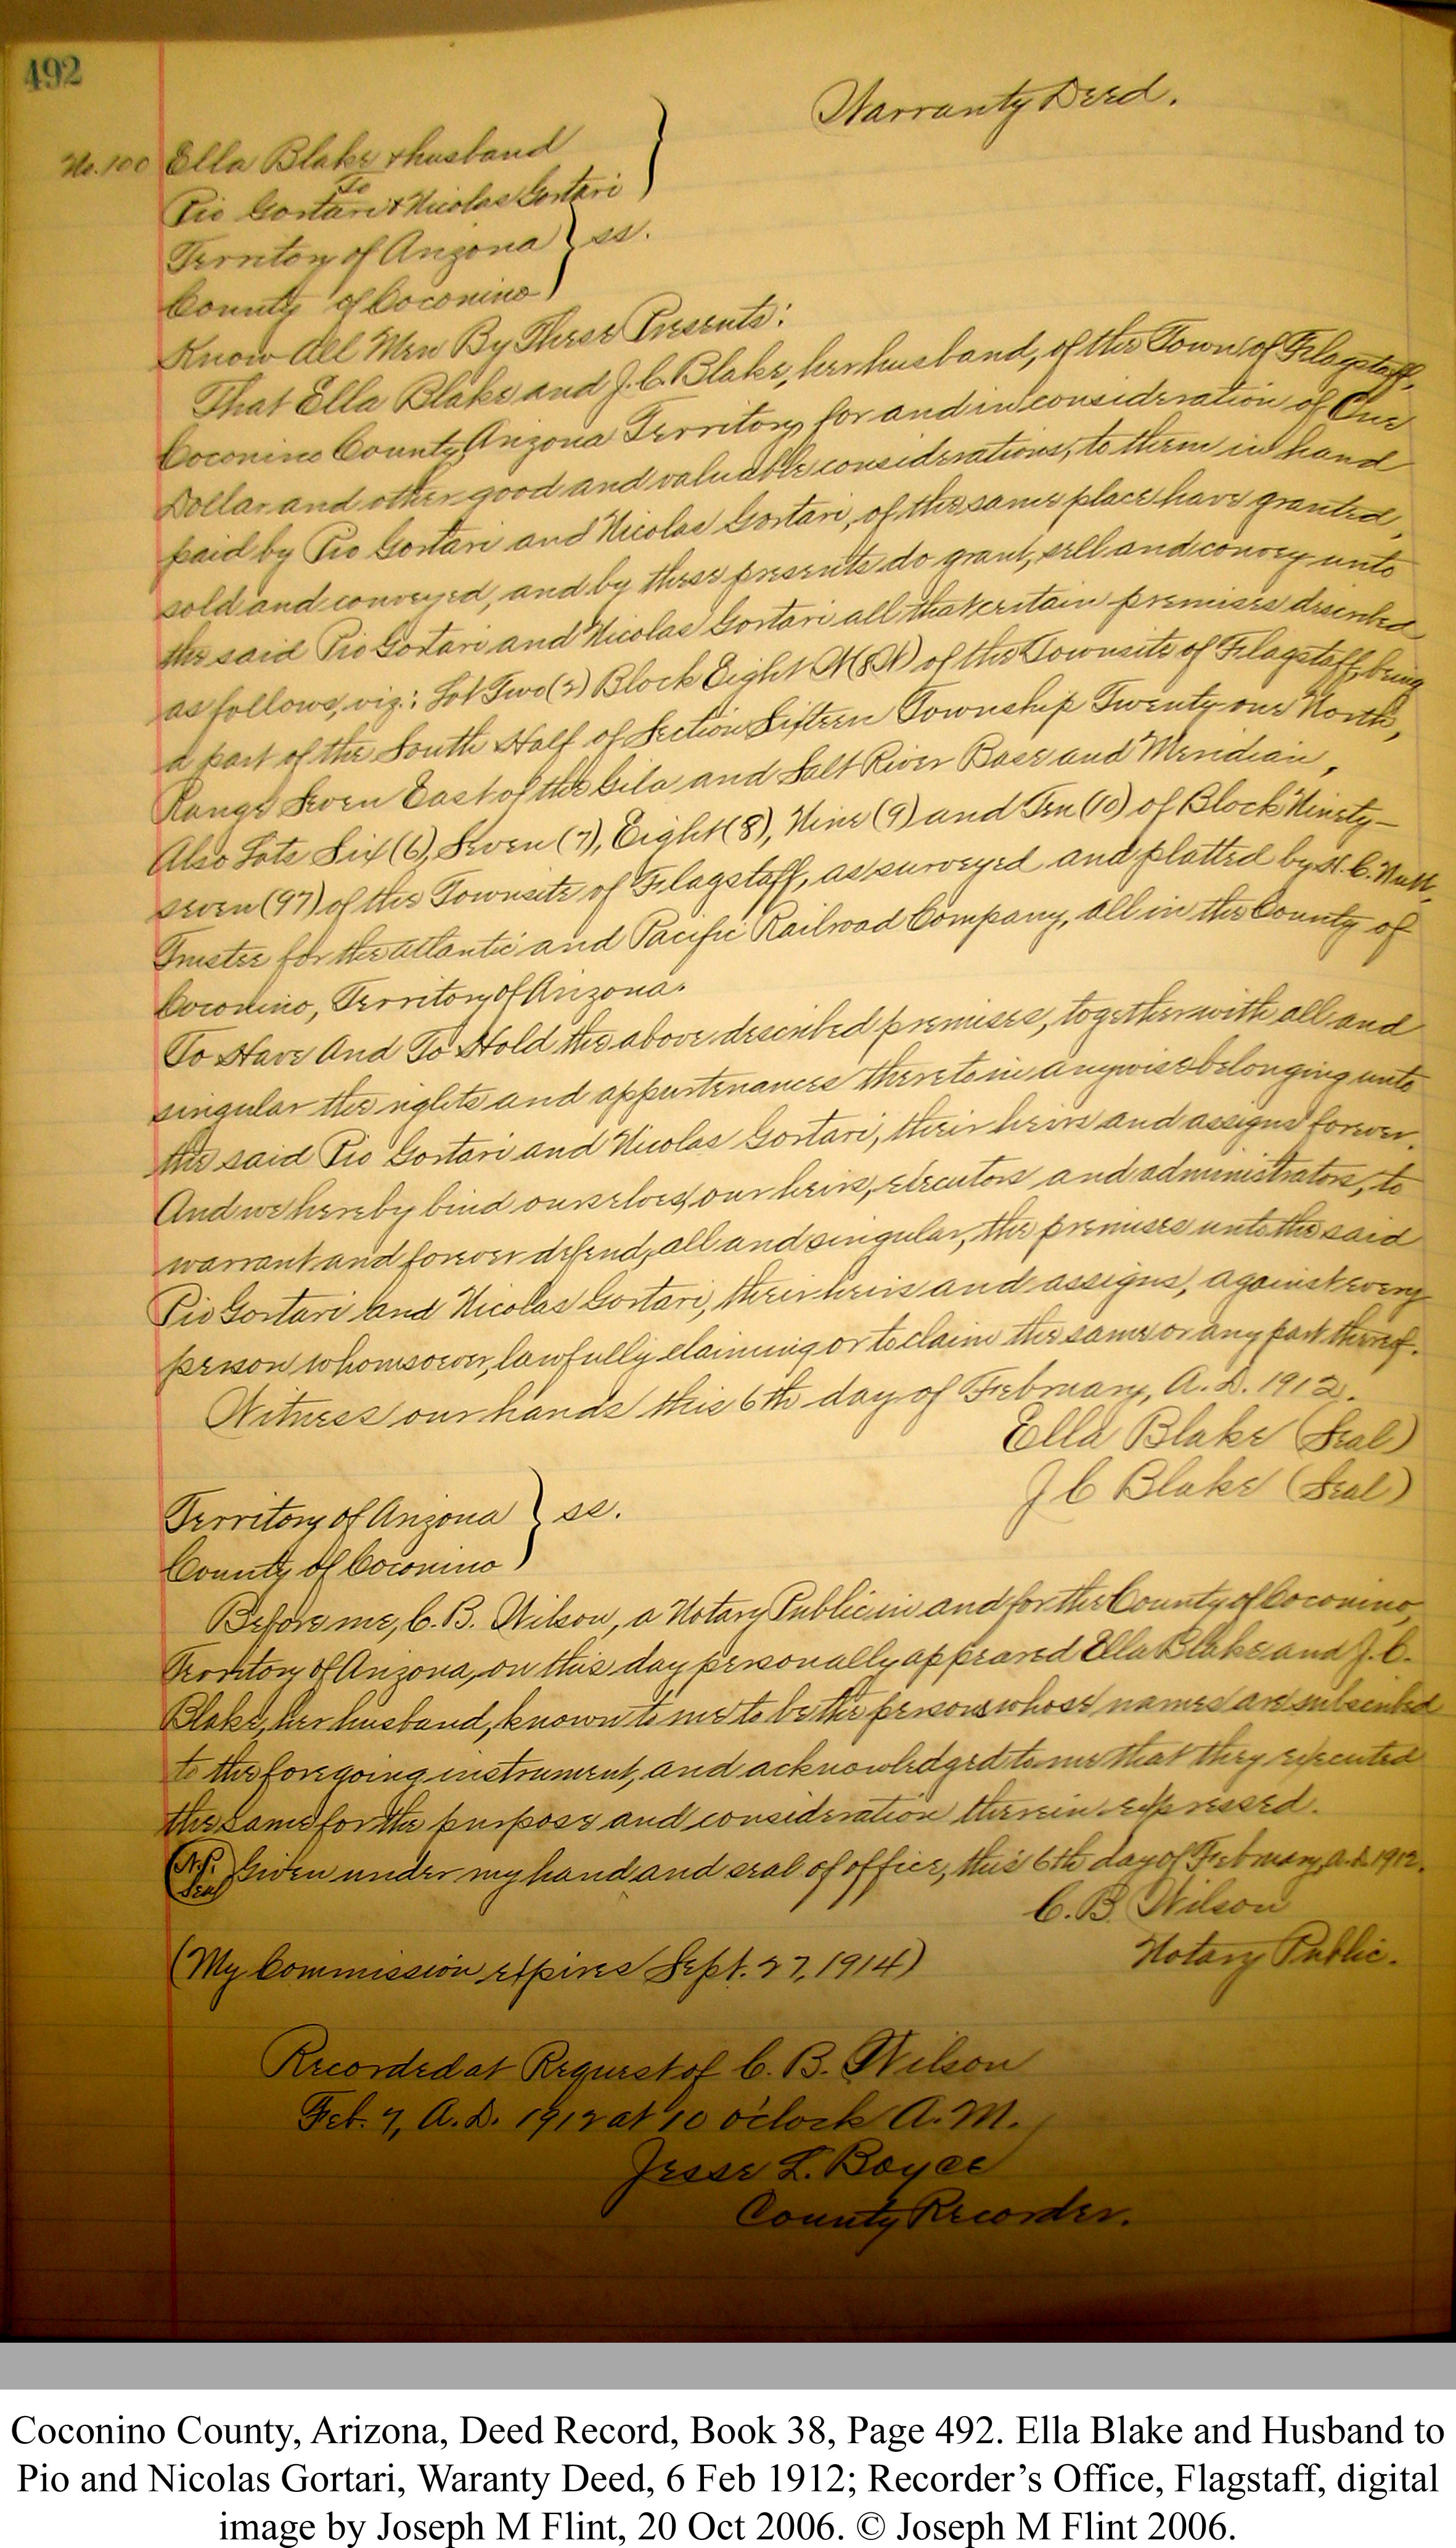 492
Warranty Deed.
No. 100 Ella Blake & husband
To
Pio Gortari & Nicolas Gortari
Territory of Arizona } ss.
County of Coconino
Know All Men By These Presents:
That Ella Blake and J. C. Blake, her husband, of the Town of Flagstaff,
Coconino County, Arizona Territory for and in consideration of One
Dollar and other good and valuable considerations, to them in hand
paid by Pio Gortari and Nicolas Gortari, of the same place have granted,
sold and conveyed, and by these presents do grant, sell and convey unto
the said Pio Gortari and Nicolas Gortari all that certain premises described
as follows, viz.: Lot Two (2) Block Eight N (8N) of the Townsite of Flagstaff, being
a part of the South Half of Section Sixteen Township Twenty one North,
Range Seven East of the Gila and Salt River Base and Meridian,
Also Lots Six (6), Seven (7), Eight (8), Nine (9) and Ten (10) of Block Ninety-
seven (97) of the Townsite of Flagstaff, as surveyed and platted by H. C. Nutt,
Trustee for the Atlantic and Pacific Railroad Company, all in the County of
Coconino, Territory of Arizona.
To Have And To Hold the above described premises, together with all and
singular the rights and appurtenances thereto in anywise belonging unto
the said Pio Gortari and Nicolas Gortari, their heirs and assigns forever.
And we hereby bind ourselves, our heirs, executors and administrators, to
warrant and forever defend, all and singular, the premises unto the said
Pio Gortari and Nicolas Gortari, their heirs and assigns, against every
person whomsoever, lawfully claiming or to claim the same or any part thereof.
Witness our hands this 6th day of February, A. D. 1912.
Ella Blake (Seal)
J C Blake (Seal)
Territory of Arizona } ss.
County of Coconino
Before me, C. B. Wilson, a Notary Public in and for the County of Coconino,
Territory of Arizona, on this day personally appeared Ella Blake and J. C.
Blake, her husband, known to me to be the persons whose names are subscribed
to the foregoing instrument, and acknowledged to me that they executed
the same for the purpose and consideration therein expressed.
(N.P. Seal) Given under my hand and seal of office, this 6th day of February, A. D. 1912.
C. B. Wilson
Notary Public.
(My Commission expires Sept. 27, 1914)
Recorded at Request of C. B. Wilson
Feb. 7, A. D. 1912 at 10 o'clock A. M.
Jesse L. Boyce
County Recorder.
Coconino County, Arizona, Deed Record, Book 38, Page 492. Ella Blake and Husband to
Pio and Nicolas Gortari, Waranty Deed, 6 Feb 1912; Recorder’s Office, Flagstaff, digital
image by Joseph M Flint, 20 Oct 2006. © Joseph M Flint 2006.